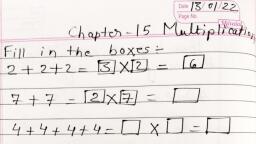 Date 18/01/22
Page No.
Chapter-15 Multiplication
Fill in the boxes:-
2+2+2 = 3 X 2 = 6
7+7 = 2 X 7 = □
4+4+4+4 = □ X □ = □